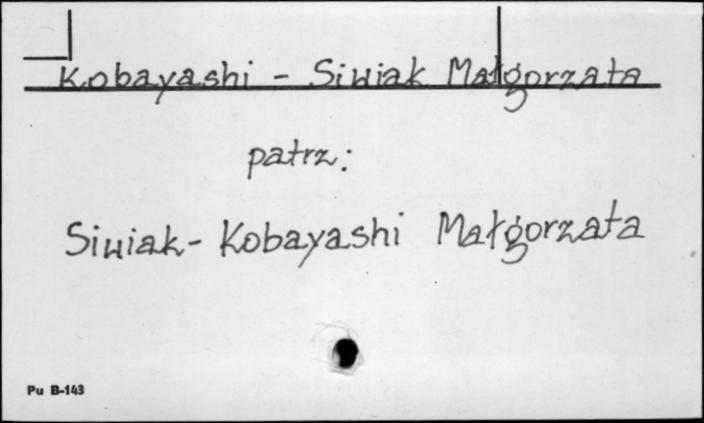 Kobayashi - Siwiak Małgorzata
patrz:
Siwiak-Kobayashi Małgorzata
Pu B-143